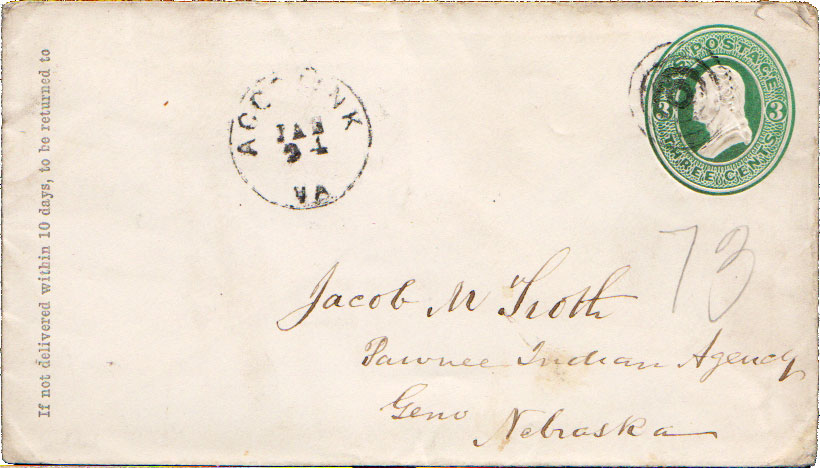 If not delivered within 10 days, to be returned to
ACCOTINK
JAN
VA
U.S. POSTAGE
3 3
THREE CENTS
73
Jacob M Troth
Pawnee Indian Agency
Geno Nebraska